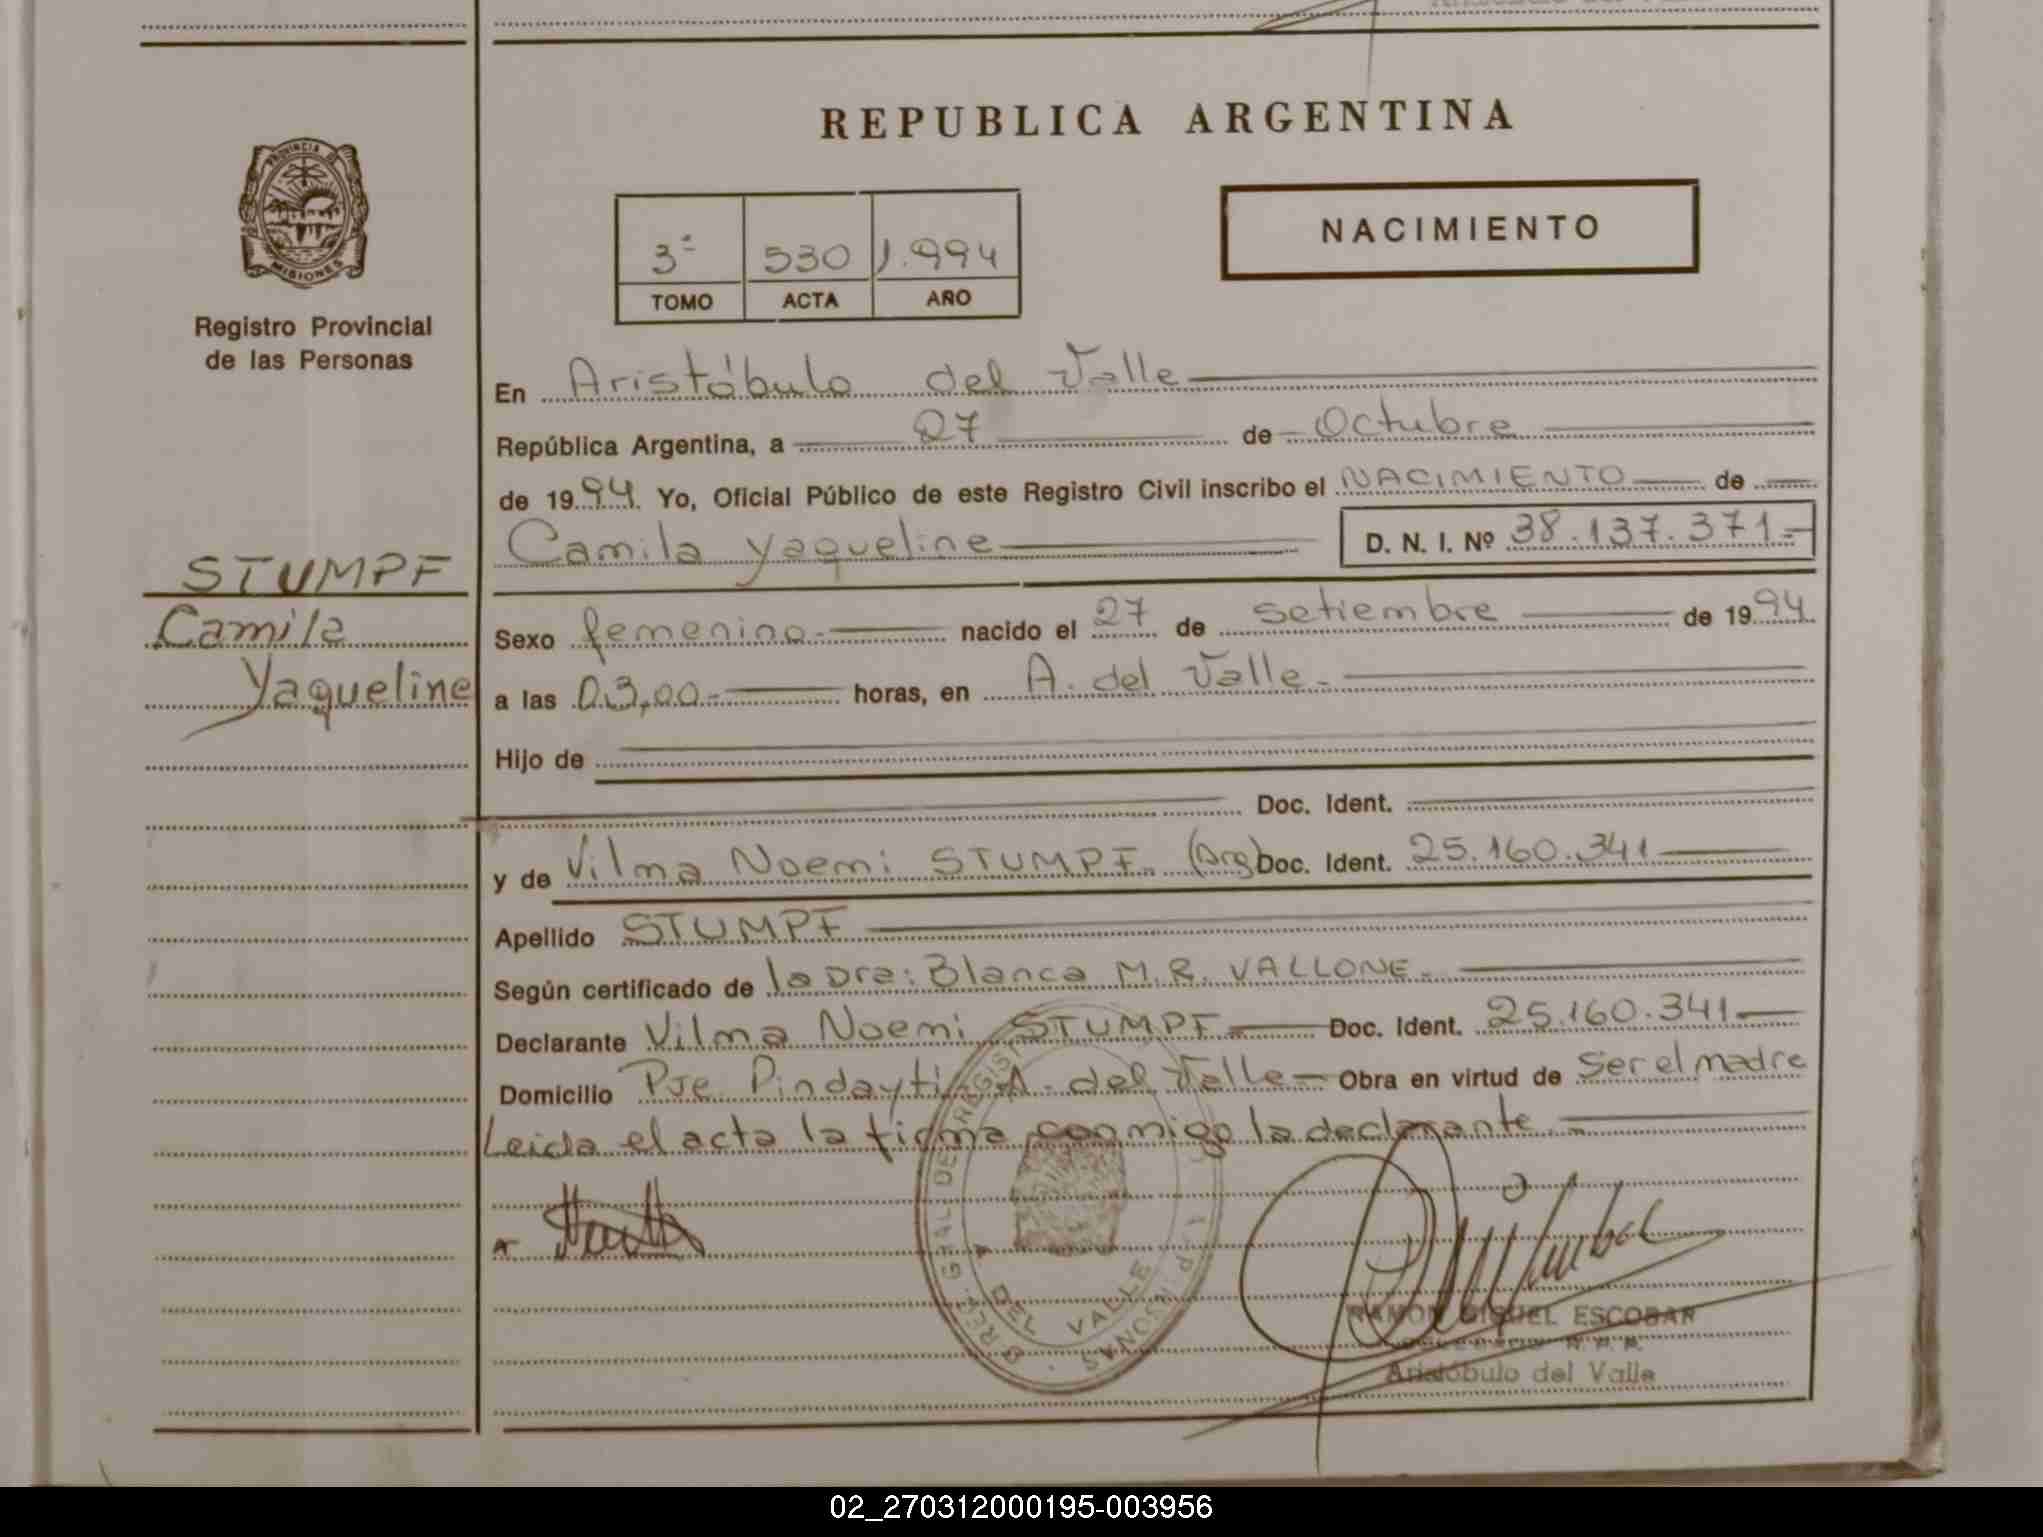 REPUBLICA ARGENTINA
PROVINCIA DE
MISIONES
Registro Provincial
de las Personas
3ª 530 1.994
TOMO ACTA AÑO
NACIMIENTO
En Aristóbulo del Valle
República Argentina, a 27 de Octubre
de 1994. Yo, Oficial Público de este Registro Civil inscribo el NACIMIENTO de
Camila Yaqueline D. N. I. Nº 38.137.371.-
STUMPF
Camila
Yaqueline
Sexo femenino.- nacido el 27 de setiembre de 1994
a las 03,00.- horas, en A. del Valle.-
Hijo de
Doc. Ident.
y de Vilma Noemi STUMPF. (Arg) Doc. Ident. 25.160.341
Apellido STUMPF
Según certificado de la Dra: Blanca M.R. VALLONE.-
Declarante Vilma Noemi STUMPF.- Doc. Ident. 25.160.341.-
Domicilio Pje. Pindayti- A. del Valle.- Obra en virtud de Ser el madre
Leida el acta la firma conmigo la declarante.-
GRAL DE REGISTRO
A DEL VALLE
RAMON MIGUEL ESCOBAR
Aristóbulo del Valle
02_270312000195-003956